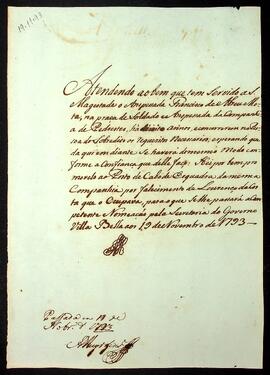 19.11.93
Atendendo ao bem que tem Servido a S.
Magestade o Anspesada Francisco de Abreu
na praça de Soldado e Anspesada da Companhia
de Pedestres, e concurrerem
do Sobredito os requesitos Necessarios, e esperando
da qui em diante Se haverá do mesmo modo con
forme a Confiança que delle faço. Hei por bem pro
movelo ao Posto de Cabo de Esquadra da mesma
Companhia, por falecimento de Lourenço da Cos
ta que o Ocupava, para o que Se lhe passará a Com
petente Nomeação pela Secretaria do Governo
Villa Bella aos 19 de Novembro de 1793
Passada em 19 de
Nobr.º d 1793